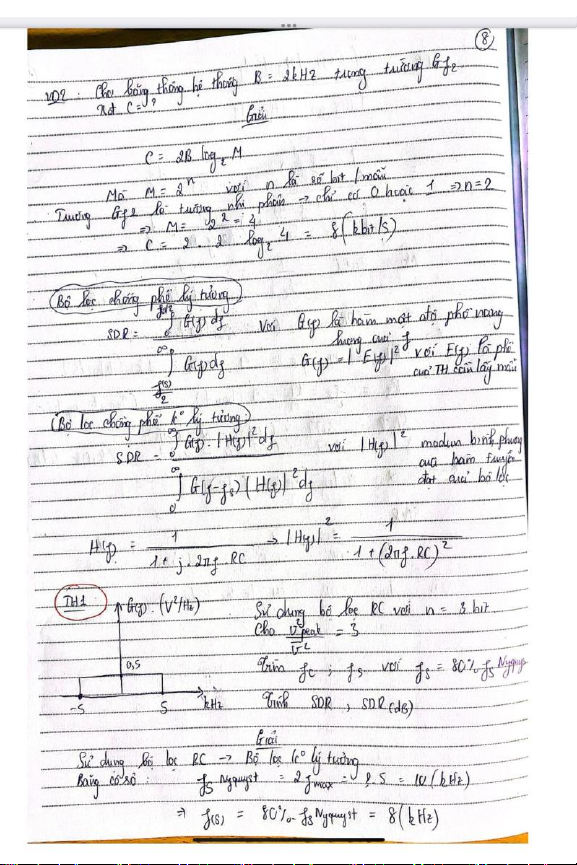 8
VD2: Cho băng thông hệ thống B = 2kHz trong trường Gf2
Rst C = ?
Giải
C = 2B log2 M
Mà M = 2^n với n là số bit / mẫu
Trường Gf2 là trường nhị phân → chỉ có 0 hoặc 1 => n = 2
=> M = 2^2 = 4
=> C = 2 . 2 log2 4 = 8 (kbit/s)
Bộ lọc chống phổ lý tưởng
SDR = ∫_0^{f(s)/2} G(f) df / ∫_{f(s)/2}^∞ G(f) df
với G(f) là hàm mật độ phổ năng
lượng của f
G(f) = |E(f)|^2 với E(f) là phổ
của TH cần lấy mẫu
(Bộ lọc chống phổ k° lý tưởng)
SDR = ∫_0^∞ G(f) . |H(f)|^2 df / ∫_0^∞ G(f-fs) |H(f)|^2 df
với |H(f)|^2 modun bình phương
của hàm truyền
đạt của bộ lọc
H(f) = 1 / (1 + j . 2πf . RC) → |H(f)|^2 = 1 / (1 + (2πf . RC)^2)
TH1
G(f) . (V^2/Hz)
0,5
-5 5 kHz
Sử dụng bộ lọc RC với n = 8 bit
Cho V^2peak / V^2 = 3
Tìm fc , fs với fs = 80% fs Nyquyst
Tính SDR , SDR(dB)
Giải
Sử dụng bộ lọc RC → Bộ lọc k° lý tưởng
Băng cơ sở: fs Nyquyst = 2 fmax = 2.5 = 10 (kHz)
=> f(s) = 80% . fs Nyquyst = 8 (kHz)